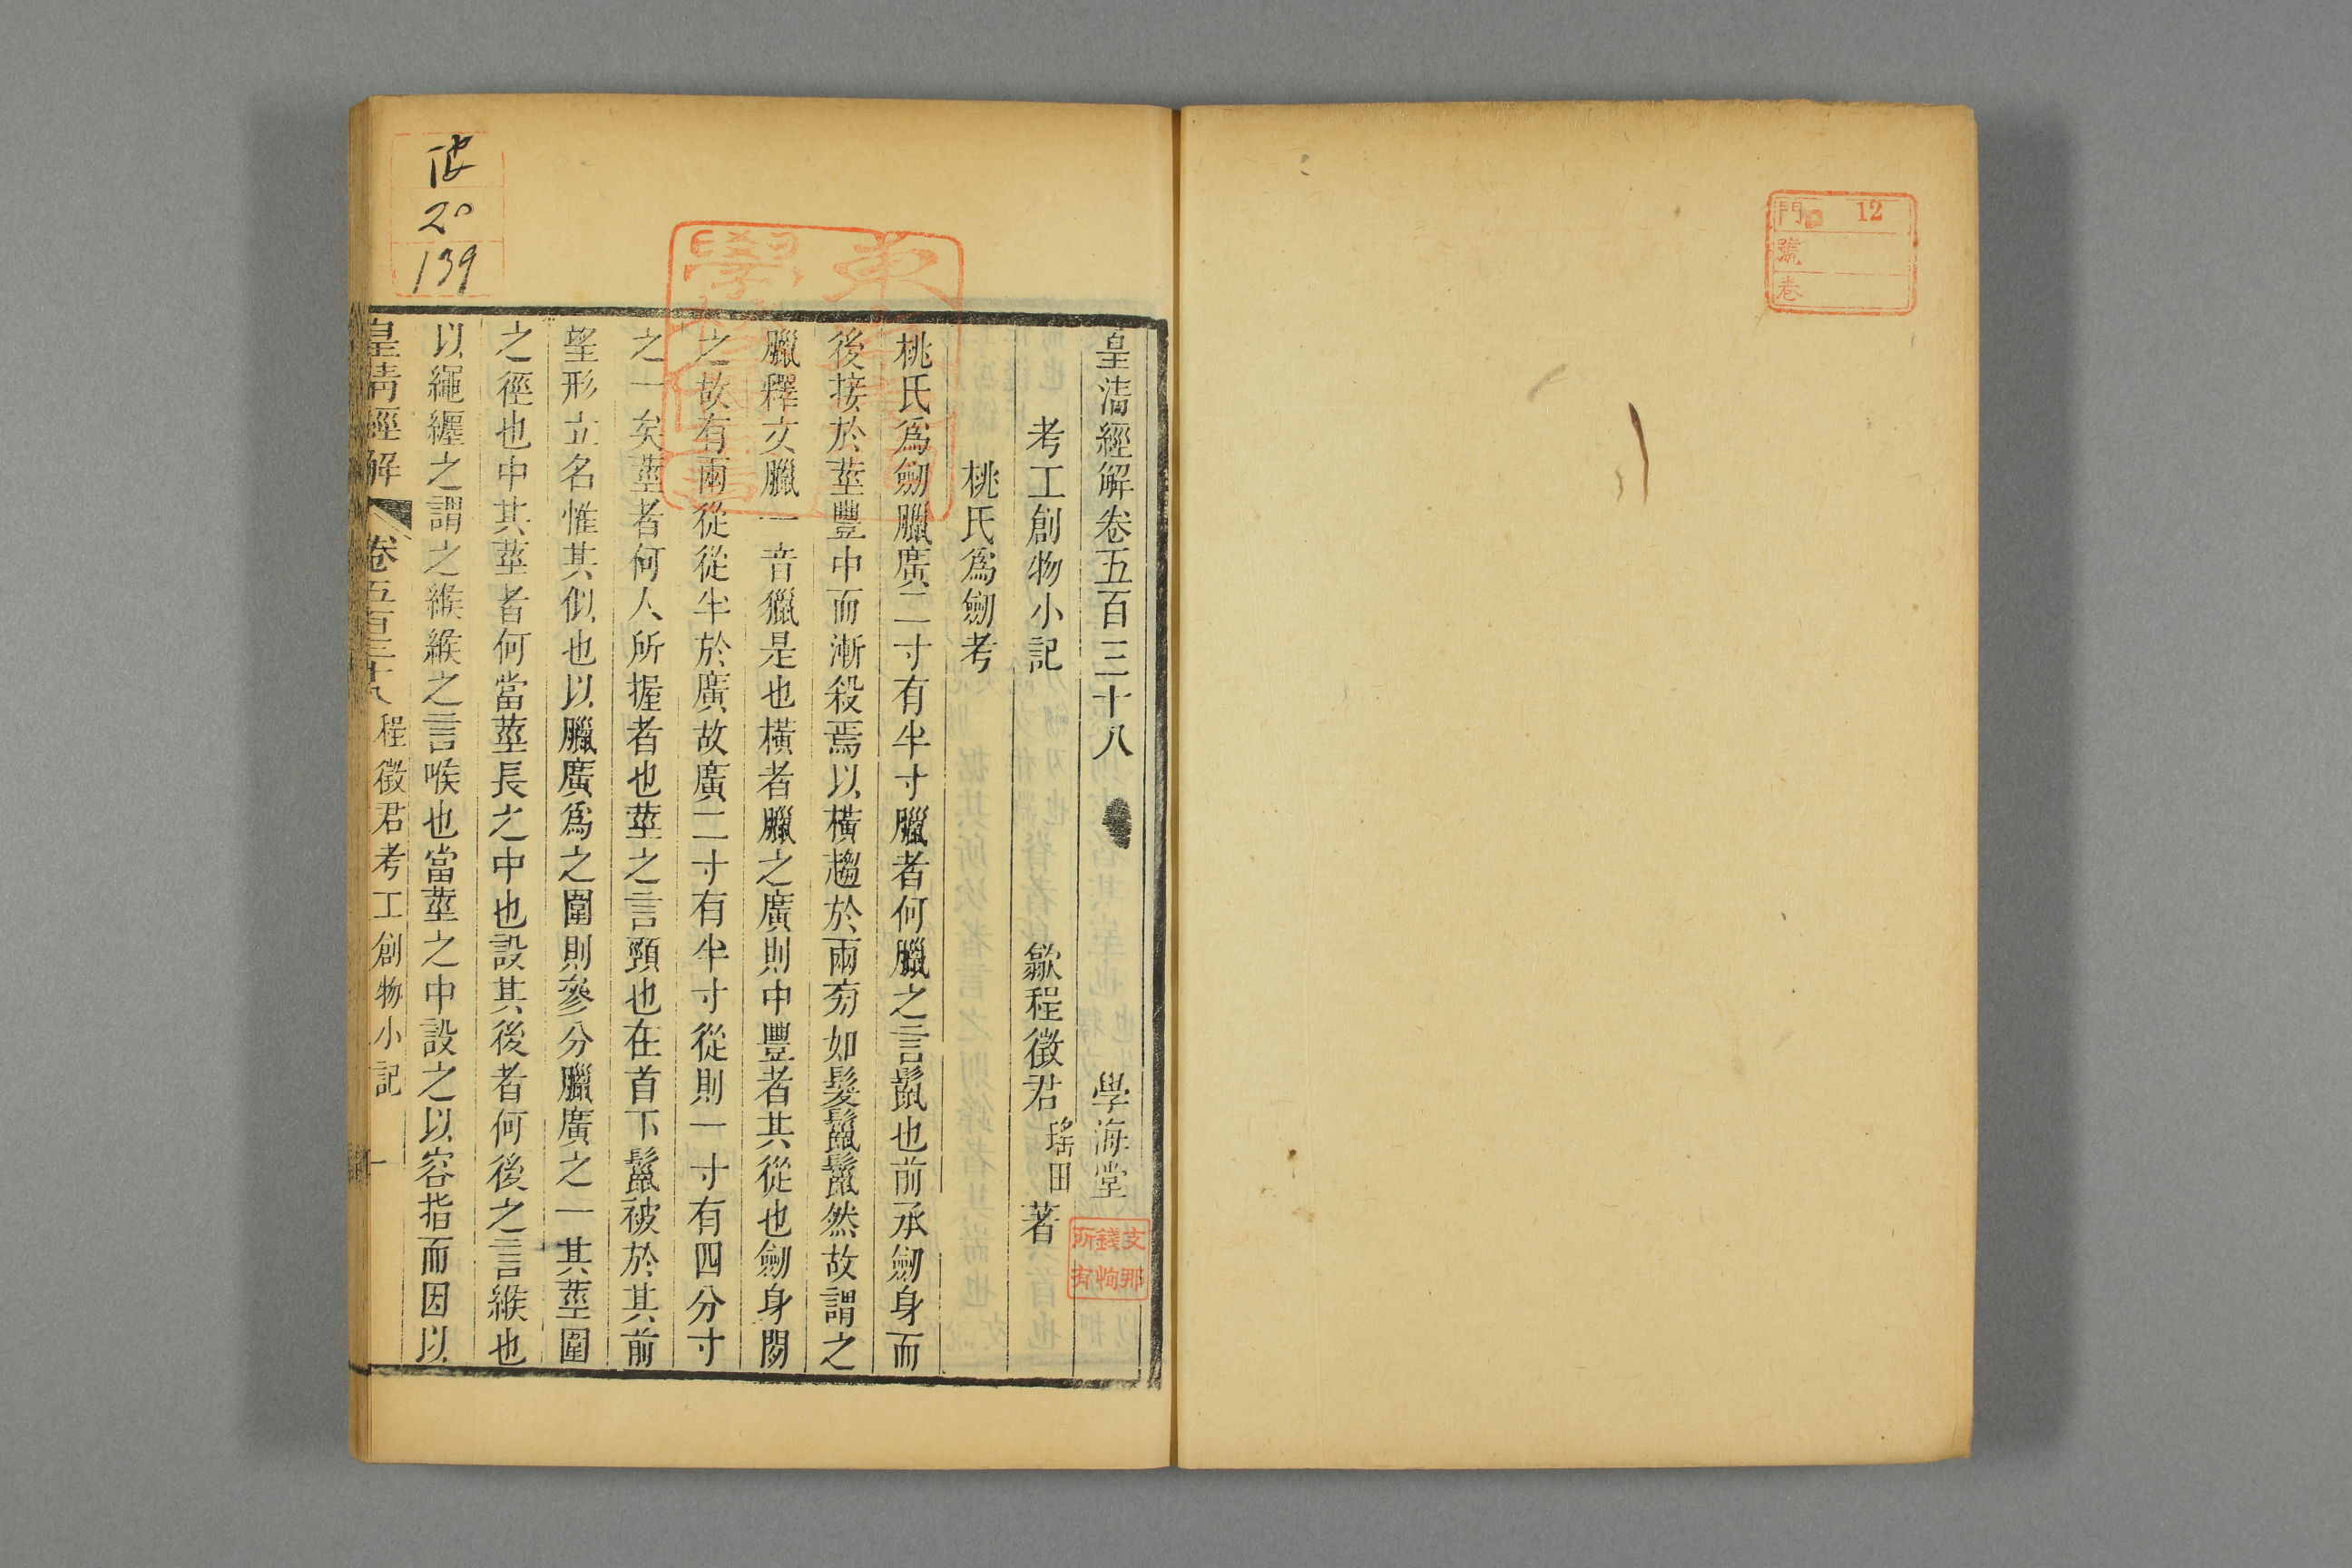 門 12
號
卷
皇清經解卷五百三十八 學海堂
考工創物小記 歙程徵君瑤田著
桃氏爲劒考
桃氏爲劒臘廣二寸有半寸臘者何臘之言鬛也前承劒身而
後接於莖豐中而漸殺焉以橫趨於兩旁如髮鬛鬛然故謂之
臘釋文臘一音獵是也橫者臘之廣則中豐者其從也劒身閷
之故有兩從從半於廣故廣二寸有半寸從則一寸有四分寸
之一矣莖者何人所握者也莖之言頸也在首下鬛被於其前
望形立名惟其似也以臘廣爲之圍則參分臘廣之一其莖圍
之徑也中其莖者何當莖長之中也設其後者何後之言緱也
以繩纏之謂之緱緱之言喉也當莖之中設之以容指而因以
皇清經解 卷五百三十八 程徵君考工創物小記 一
支那
錢恂
所有
20
139